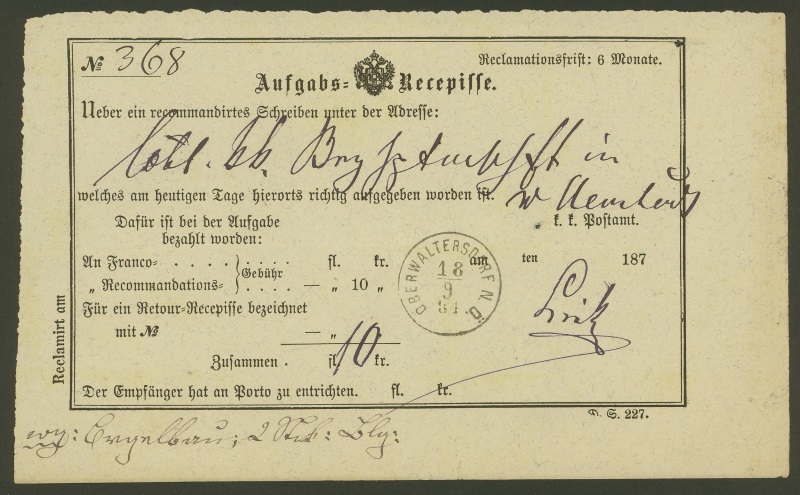 № 368
Reclamationsfrist: 6 Monate.
Aufgabs= Recepisse.
Ueber ein recommandirtes Schreiben unter der Adresse:
Löbl. kk. Bezhptmschft in
welches am heutigen Tage hierorts richtig aufgegeben worden ist.
k. k. Postamt.
Dafür ist bei der Aufgabe
bezahlt worden:
An Franco= . . . . . } Gebühr fl. kr.
„ Recommandations= } — „ 10 „
Für ein Retour=Recepisse bezeichnet
mit № — „
Zusammen . fl. 10 kr.
Der Empfänger hat an Porto zu entrichten. fl. kr.
am ten 187
OBERWALTERSDORF N.Ö.
18
9
81
Reclamirt am
D. S. 227.
wg: Orgelbau; 2 Stck: Blg: